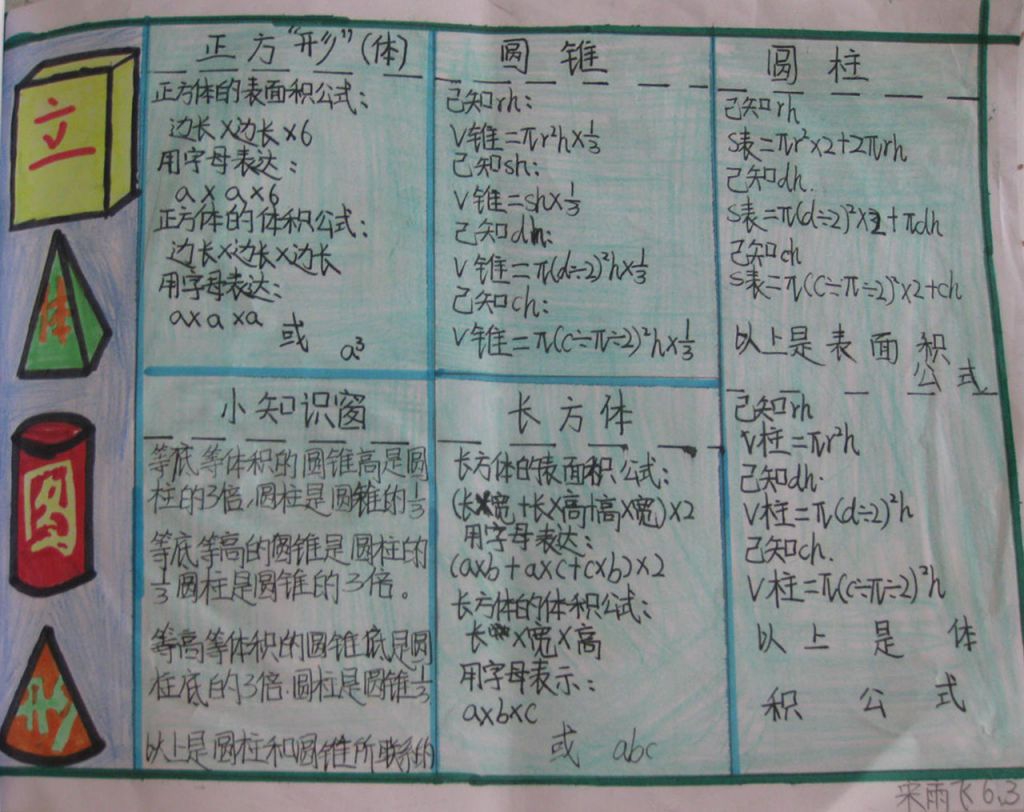 立
体
图
形
正方“形”(体)
正方体的表面积公式:
边长×边长×6
用字母表达:
a×a×6
正方体的体积公式:
边长×边长×边长
用字母表达:
a×a×a
或 a³
圆锥
已知rh:
V锥=πr²h×1/3
已知sh:
V锥=sh×1/3
已知dh:
V锥=π(d÷2)²h×1/3
已知ch:
V锥=π(c÷π÷2)²h×1/3
圆柱
已知rh
S表=πr²×2+2πrh
已知dh.
S表=π(d÷2)²×2+πdh
已知ch
S表=π(C÷π÷2)²×2+ch
以上是表面积
公式
已知rh
V柱=πr²h
已知dh.
V柱=π(d÷2)²h
已知ch.
V柱=π(c÷π÷2)²h
以上是体
积公式
小知识窗
等底等体积的圆锥高是圆
柱的3倍.圆柱是圆锥的1/3
等底等高的圆锥是圆柱的
1/3圆柱是圆锥的3倍。
等高等体积的圆锥底是圆
柱底的3倍.圆柱是圆锥1/3
以上是圆柱和圆锥所联系的
长方体
长方体的表面积公式:
(长×宽+长×高+高×宽)×2
用字母表达:
(a×b+a×c+c×b)×2
长方体的体积公式:
长×宽×高
用字母表示:
a×b×c
或 abc
来雨飞 6.3